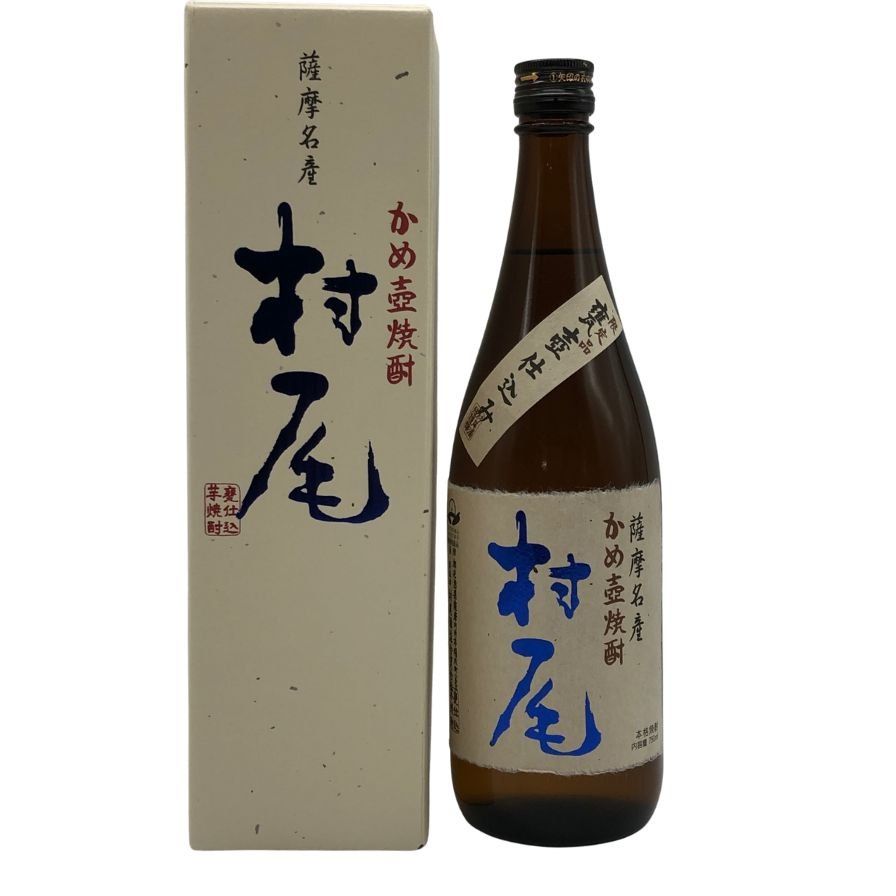 薩摩名産
かめ壺焼酎
村尾
甕仕込
芋焼酎
①矢印の
限定品
甕壺仕込み
薩摩名産
かめ壺焼酎
村尾
本格焼酎
内容量 750ml